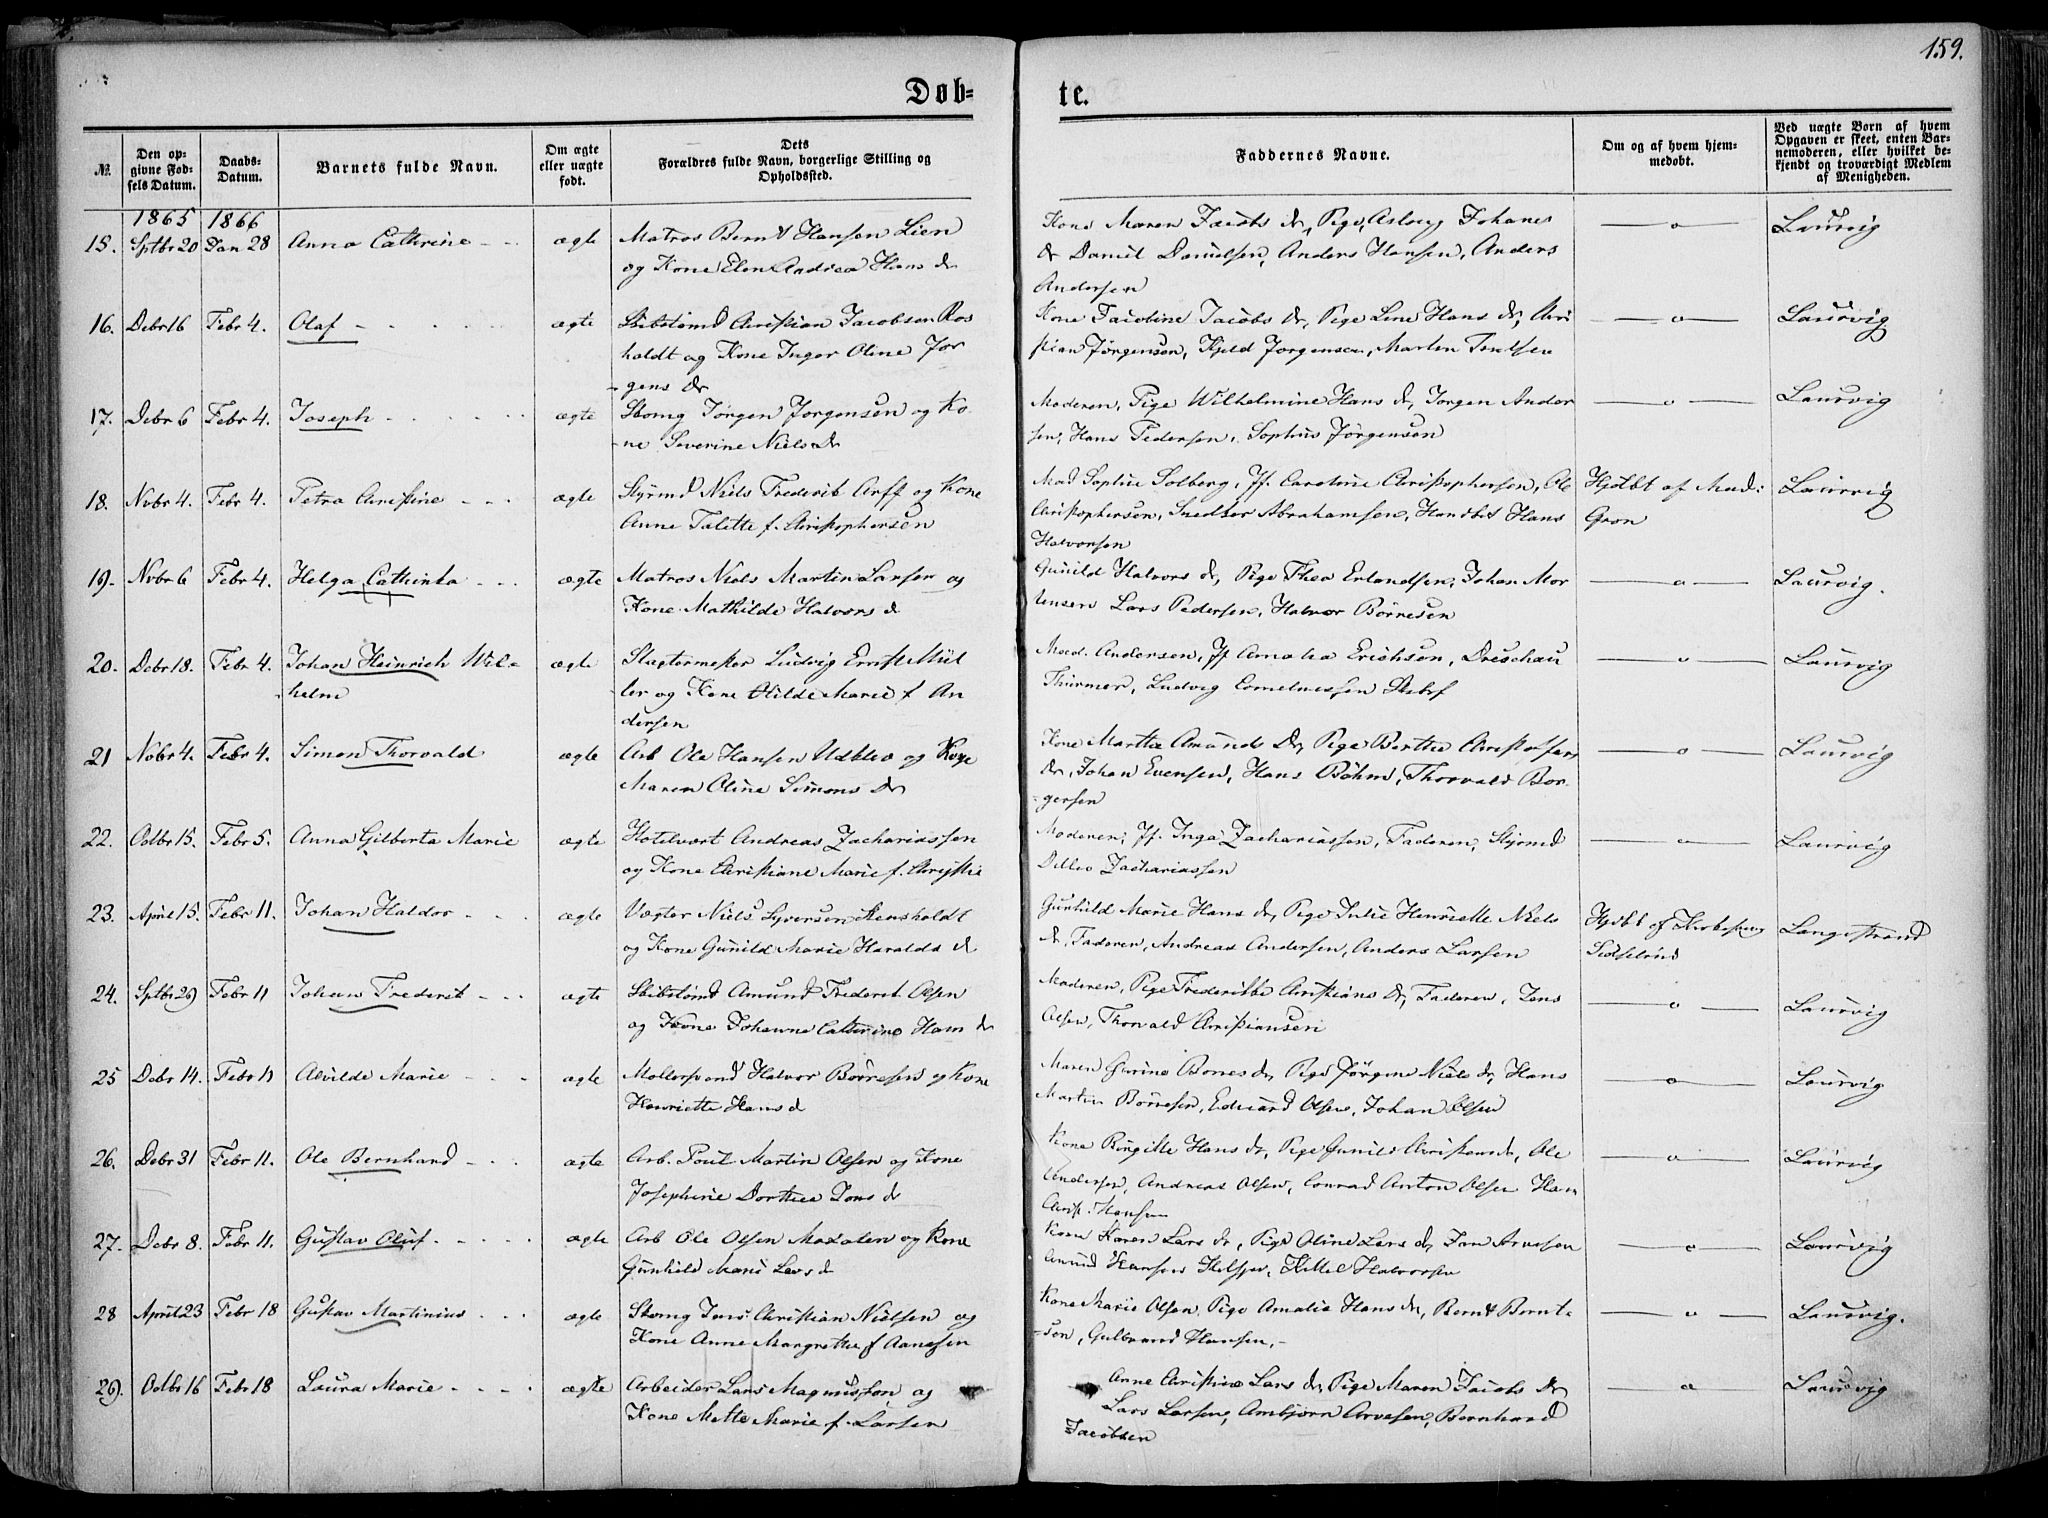 159.
Døb-
te.
№
Den op-
givne Fød-
sels Datum.
Daabs-
Datum.
Barnets fulde Navn.
Om ægte
eller uægte
født.
Dets
Forældres fulde Navn, borgerlige Stilling og
Opholdssted.
Faddernes Navne.
Om og af hvem hjem-
medøbt.
Ved uægte Børn af hvem
Opgaven er skeet, enten Bar-
nemoderen, eller hvilket be-
kjendt og troværdigt Medlem
af Menigheden.
1865 1866
15. Sptbr 20 Jan 28 Anna Cathrine - - ægte Matros Bernt Hansen Lien
og Kone Elen Andrea Hans dr
Kone Maren Jacobs dr, Pige Asborg Johanes
dr Daniel Danielsen, Anders Hansen, Anders
Andersen
—o— Laurvig
16. Debr 16 Febr 4. Olaf - - - ægte Skibstømd Christian Jacobsen Ros
holdt og Kone Inger Oline Jør
gens dr
Kone Jacobine Jacobs dr, Pige Line Hans dr, Chri
stian Jørgensen, Kjeld Jørgensen, Martin
—o— Laurvig
17. Debr 6 Febr 4. Joseph - - - ægte Skomg Jørgen Jørgensen og Ko-
-ne Severine Niels dr
Moderen, Pige Wilhelmine Hans dr, Jørgen Ander
sen, Hans Pedersen, Sophus Jørgensen
—o— Laurvig
18. Nvbr 4. Febr 4. Petra Christine - - ægte Styrmd Niels Frederik Arff og Kone
Anne Talette f. Christophersen
Mad Sophie Solberg, Jf. Caroline Christophersen, Ol
Christophersen, Snedker Abrahamsen, Handbet Hans
Halvorsen
Hjdbt af Mad:
Grøn
Laurvig
19. Nvbr 6 Febr 4. Helga Cathinka - - ægte Matros Niels Martin Larsen og
Kone Mathilde Halvors d
Gunild Halvors dr, Pige Thea Erlandsen, Johan Mor
tensen Lars Pedersen, Halvor Børresen
—o— Laurvig.
20. Debr 18. Febr 4. Johan Heinrich Wil-
-helm
ægte Slagtermester Ludvig Ernst Mül
ler og Kone Hilde Marie f An
dersen
Mad. Andersen, Jf Amalia Erichsen, Dreschau
Thürmer, Ludvig Corneliussen
—o— Laurvig
21 Nobr 4. Febr 4. Simon Thorvald ægte Arb Ole Hansen Udklev og Kone
Maren Oline Simons dr
Kone Marthe Amunds dr, Pige Berthe Christoffers
dr, Johan Evensen, Hans Bøhm, Thorvald Bor-
-gersen
—o— Laurvig
22. Octbr 15. Febr 5. Anna Gilberta Marie ægte Hotelvært Andreas Zachariassen
og Kone Christiane Marie f. Chrystie
Moderen, Jf. Inga Zachariassen, Faderen, Styrmd
Ditlev Zachariassen
—o— Laurvig
23. April 15. Febr 11. Johan Haldor - - ægte Vægter Niels Syversen Stensholdt
og Kone Gunild Marie Haralds d
Gunhild Marie Hans dr, Pige Julie Henriette Niels
dr, Faderen, Andreas Andersen, Anders Larsen
Hjdbt af
Langestrand
24. Sptbr 29 Febr 11 Johan Frederik - - ægte Skibstømd Amund Frederik Olsen
og Kone Johanne Cathrine Hans dr
Moderen, Pige Frederikke Christians dr, Faderen, Jens
Olsen, Thorvald Christiansen
—o— Laurvig
25 Debr 14. Febr 11 Alvilde Marie - - ægte Møllersvend Halvor Børresen og Kone
Henriette Hans d
Maren Gurine Børres dr, Pige Jørgine Niels dr, Hans
Martin Børresen, Edvard Olsen, Johan Olsen
—o— Laurvig
26. Debr 31 Febr 11. Ole Bernhard - - ægte Arb. Poul Martin Olsen og Kone
Josephine Dorthea Jens d
Kone Birgitte Hans dr, Pige Gunild Christens dr, Ole
Andersen, Andreas Olsen, Conrad Anton Olsen Hans
Christ. Hansen
—o— Laurvig
27. Debr 8. Febr 11. Gustav Oluf - - - ægte Arb Ole Olsen og Kone
Gunhild Marie Lars d
Kone Karen Lars dr, Pige Oline Lars dr, Jan Arvesen
Amund Hansen, Kittel Halvorsen
—o— Laurvig
28 April 23 Febr 18 Gustav Martinius - - ægte Skomg Jens Christian Nielsen og
Kone Anne Margrethe f Aanesen
Kone Marie Olsen, Pige Amalie Hans dr, Bernt Bernt-
-sen, Gulbrand Hansen,-
—o— Laurvig.
29. Octbr 16 Febr 18 Laura Marie - - - ægte Arbeider Lars Magnussøn og
Kone Mette Marie f. Larsen
Anne Christine Lars dr, Pige Maren Jacobs dr
Lars Larsen, Ambjørn Arvesen, Bernhard
Jacobsen
—o— Laurvig